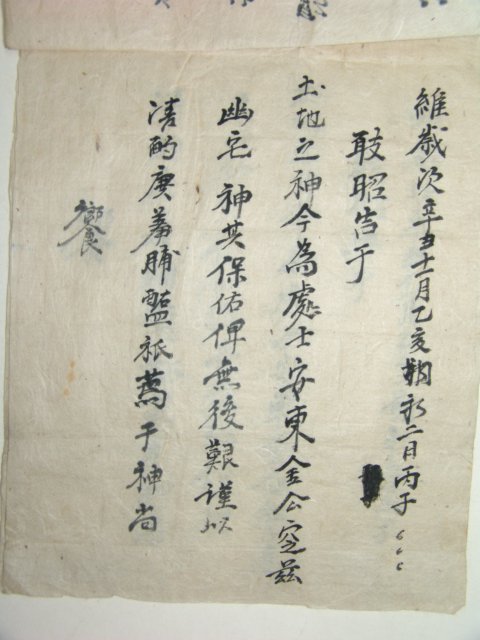 維歲次辛丑十一月乙亥朔初二日丙子
敢昭告于
土地之神今為處士安東金公窆茲
幽宅神其保佑俾無後艱謹以
清酌庶羞脯醢祗薦于神尚
饗